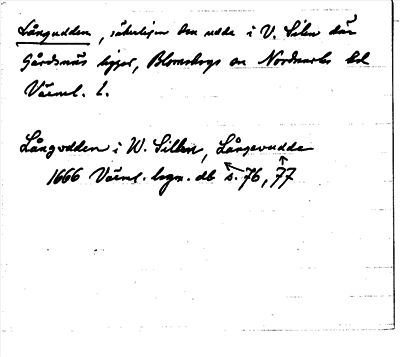 Långudden, säkerligen den udde i V. Silen där
Gårdsnäs ligger, Blomskogs sn Nordmarks hd
Värml. l.
Långvdden i W. Sillen, Långevudde
1666 Värml. lagn. db s. 76, 77